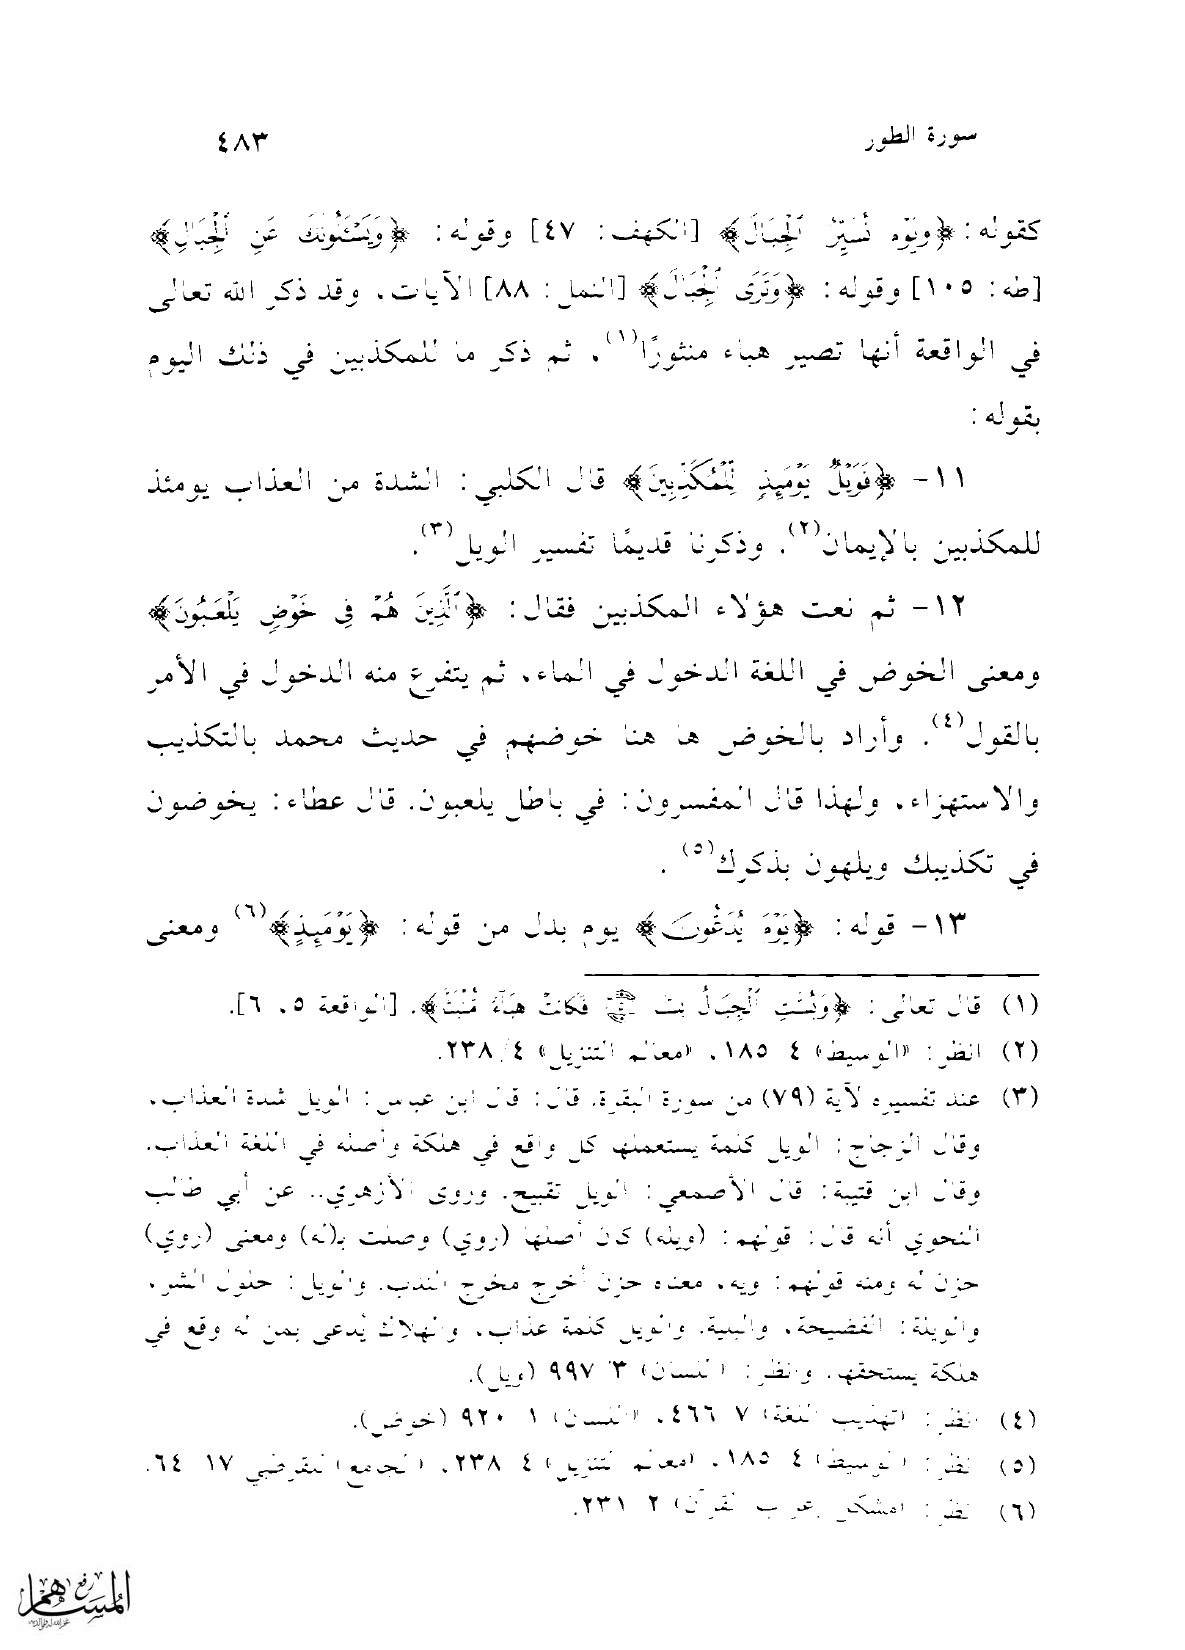 سورة الطور
٤٨٣
كقوله: ﴿وَيَوْمَ نُسَيِّرُ ٱلْجِبَالَ﴾ [الكهف: ٤٧] وقوله: ﴿وَيَسْـَٔلُونَكَ عَنِ ٱلْجِبَالِ﴾
[طه: ١٠٥] وقوله: ﴿وَتَرَى ٱلْجِبَالَ﴾ [النمل: ٨٨] الآيات، وقد ذكر الله تعالى
في الواقعة أنها تصير هباء منثورًا(١)، ثم ذكر ما للمكذبين في ذلك اليوم
بقوله:
١١- ﴿فَوَيْلٌ يَوْمَئِذٍ لِّلْمُكَذِّبِينَ﴾ قال الكلبي: الشدة من العذاب يومئذ
للمكذبين بالإيمان(٢). وذكرنا قديمًا تفسير الويل(٣).
١٢- ثم نعت هؤلاء المكذبين فقال: ﴿ٱلَّذِينَ هُمْ فِى خَوْضٍ يَلْعَبُونَ﴾
ومعنى الخوض في اللغة الدخول في الماء، ثم يتفرع منه الدخول في الأمر
بالقول(٤). وأراد بالخوض ها هنا خوضهم في حديث محمد بالتكذيب
والاستهزاء، ولهذا قال المفسرون: في باطل يلعبون. قال عطاء: يخوضون
في تكذيبك ويلهون بذكرك(٥).
١٣- قوله: ﴿يَوْمَ يُدَعُّونَ﴾ يوم بدل من قوله: ﴿يَوْمَئِذٍ﴾(٦) ومعنى
(١) قال تعالى: ﴿وَبُسَّتِ ٱلْجِبَالُ بَسًّا ۝ فَكَانَتْ هَبَآءً مُّنۢبَثًّا﴾. [الواقعة ٥، ٦].
(٢) انظر: «الوسيط» ٤/ ١٨٥، «معالم التنزيل» ٤/ ٢٣٨.
(٣) عند تفسيره لآية (٧٩) من سورة البقرة. قال: قال ابن عباس: الويل شدة العذاب،
وقال الزجاج: الويل كلمة يستعملها كل واقع في هلكة وأصله في اللغة العذاب.
وقال ابن قتيبة: قال الأصمعي: الويل تقبيح. وروى الأزهري.. عن أبي طالب
النحوي أنه قال: قولهم: (ويله) كان أصلها (روي) وصلت بـ(له) ومعنى (روي)
حزن له ومنه قولهم: ويه، معناه حزن أخرج مخرج الندب. والويل: حلول الشر،
والويلة: الفضيحة، والبلية. والويل كلمة عذاب، والهلاك يُدعى بمن له وقع في
هلكة يستحقها. وانظر: «اللسان» ٣/ ٩٩٧ (ويل).
(٤) انظر: «تهذيب اللغة» ٧/ ٤٦٦، «اللسان» ١/ ٩٢٠ (خوض).
(٥) انظر: «الوسيط» ٤/ ١٨٥، «معالم التنزيل» ٤/ ٢٣٨، «الجامع» للقرطبي ١٧/ ٦٤.
(٦) انظر: «مشكل إعراب القرآن» ٢/ ٢٣١.